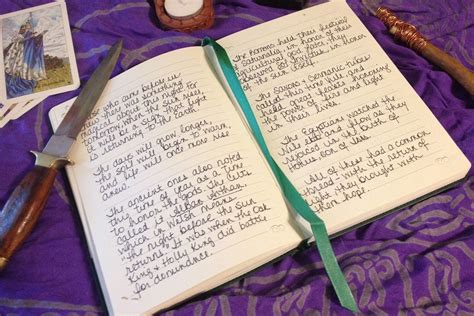 those who came before us
knew there was something
magical about this night. For
tomorrow, when the sun rises,
it will be a sign that light
is returning to the earth.
The days will grow longer,
the soil will begin to warm
anew. Life will once more rise.
The ancient ones also noted
this time of year as a time
to honor the gods. The Celts
called it Alban Arthan,
which in Welsh means
the night before the sun
returns. It was when the Oak
King & Holly King did battle
for dominance.
The Romans held their festival
of Saturnalia, in honor of their
agricultural god. Later, they
honored Sol Invictus, in honor
of the sun itself.
The Saxons & Germanic tribes
called this time Yule, and
held great feasts, honoring
the power of fire and light
in their lives.
The Egyptians watched the
Nile ebb and flow as they
rejoiced in the birth of
Horus, son of Isis.
All of these had a common
thread - with the return of
light they brought with
them hope.